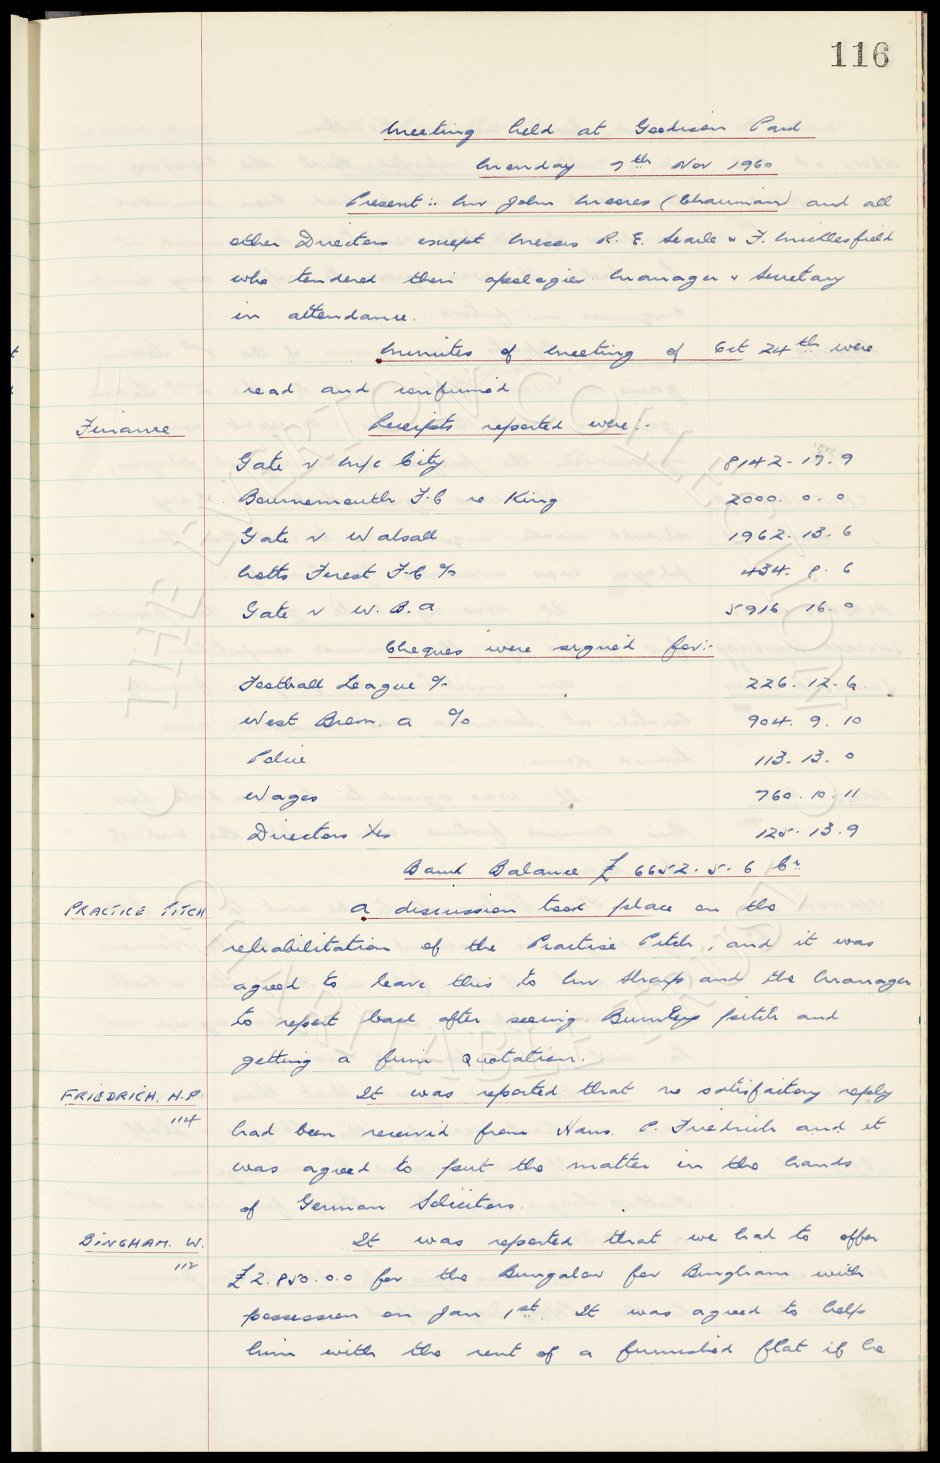 116
Meeting held at Goodison Park
Monday 7th Nov 1960
Present:- Mr John Moores (Chairman) and all
other Directors except Messrs R. E. Searle & F. Micklesfield
who tendered their apologies. Manager & Secretary
in attendance.
Minutes of meeting of Oct 24th were
read and confirmed
Finance
Receipts reported were:-
Gate v M/c City 8142-17.9
Bournemouth F.C re King 2000. 0. 0
Gate v Walsall 1962. 13. 6
Notts Forest F.C % 434. 8. 6
Gate v W. B. A 5916. 16. 0
Cheques were signed for:-
Football League % 226. 12. 6
West Brom. A % 904. 9. 10
Police 113. 13. 0
Wages 760. 10. 11
Directors Xes 125. 13. 9
Bank Balance £ 6652. 5. 6 Cr
PRACTICE PITCH
A discussion took place on the
rehabilitation of the Practise Pitch, and it was
agreed to leave this to Mr Sharp and the Manager
to report back after seeing Burnleys pitch and
getting a firm quotation.
FRIEDRICH. H.P.
114
It was reported that no satisfactory reply
had been received from Hans. P. Friedrich and it
was agreed to put the matter in the hands
of German Solicitors.
BINGHAM. W.
112
It was reported that we had to offer
£2.850.0.0 for the Bungalow for Bingham with
possession on Jan 1st. It was agreed to help
him with the rent of a furnished flat if he
THE EVERTON COLLECTION
CHARITABLE TRUST